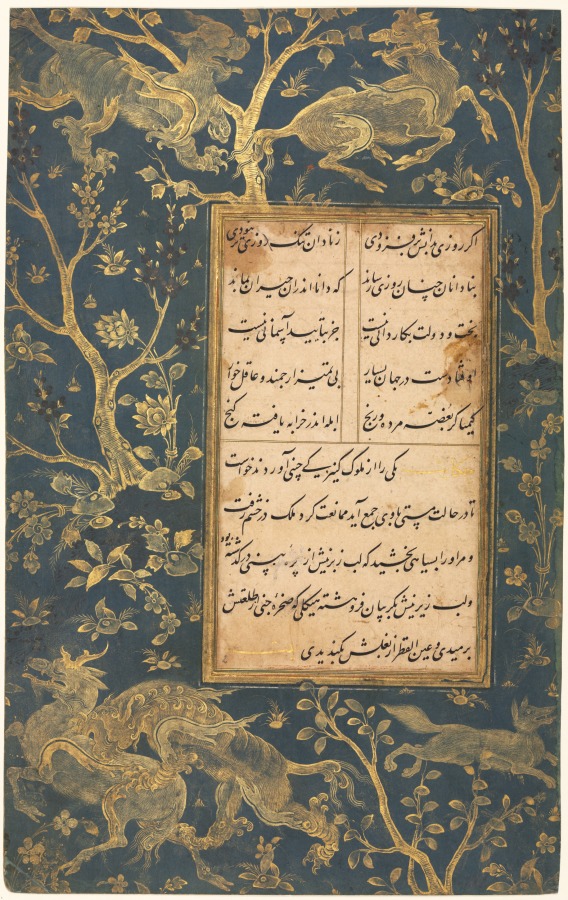 اگر روزی بدانش بر فزودی ز نادان تنگ روزی تر نبودی
بنادانان چنان روزی رساند که دانا اندران حیران بماند
بخت و دولت بکاردانی نیست جز بتأیید آسمانی نیست
اوفتادست در جهان بسیار بی تمیز ارجمند و عاقل خوار
کیمیاگر بغصه مرده و رنج ابله اندر خرابه یافته گنج
یکی را از ملوک کنیزکی چینی آوردند خواست
تا در حالت مستی با وی جمع آید ممانعت کرد ملک در خشم رفت
و مر او را بسیاهی بخشید که لب زبرینش از پره بینی در گذشته بود
و لب زیرینش بگریبان فرو هشته هیکلی که صخره جنی از طلعتش
برمیدی و عین القطر از بغلش بگندیدی